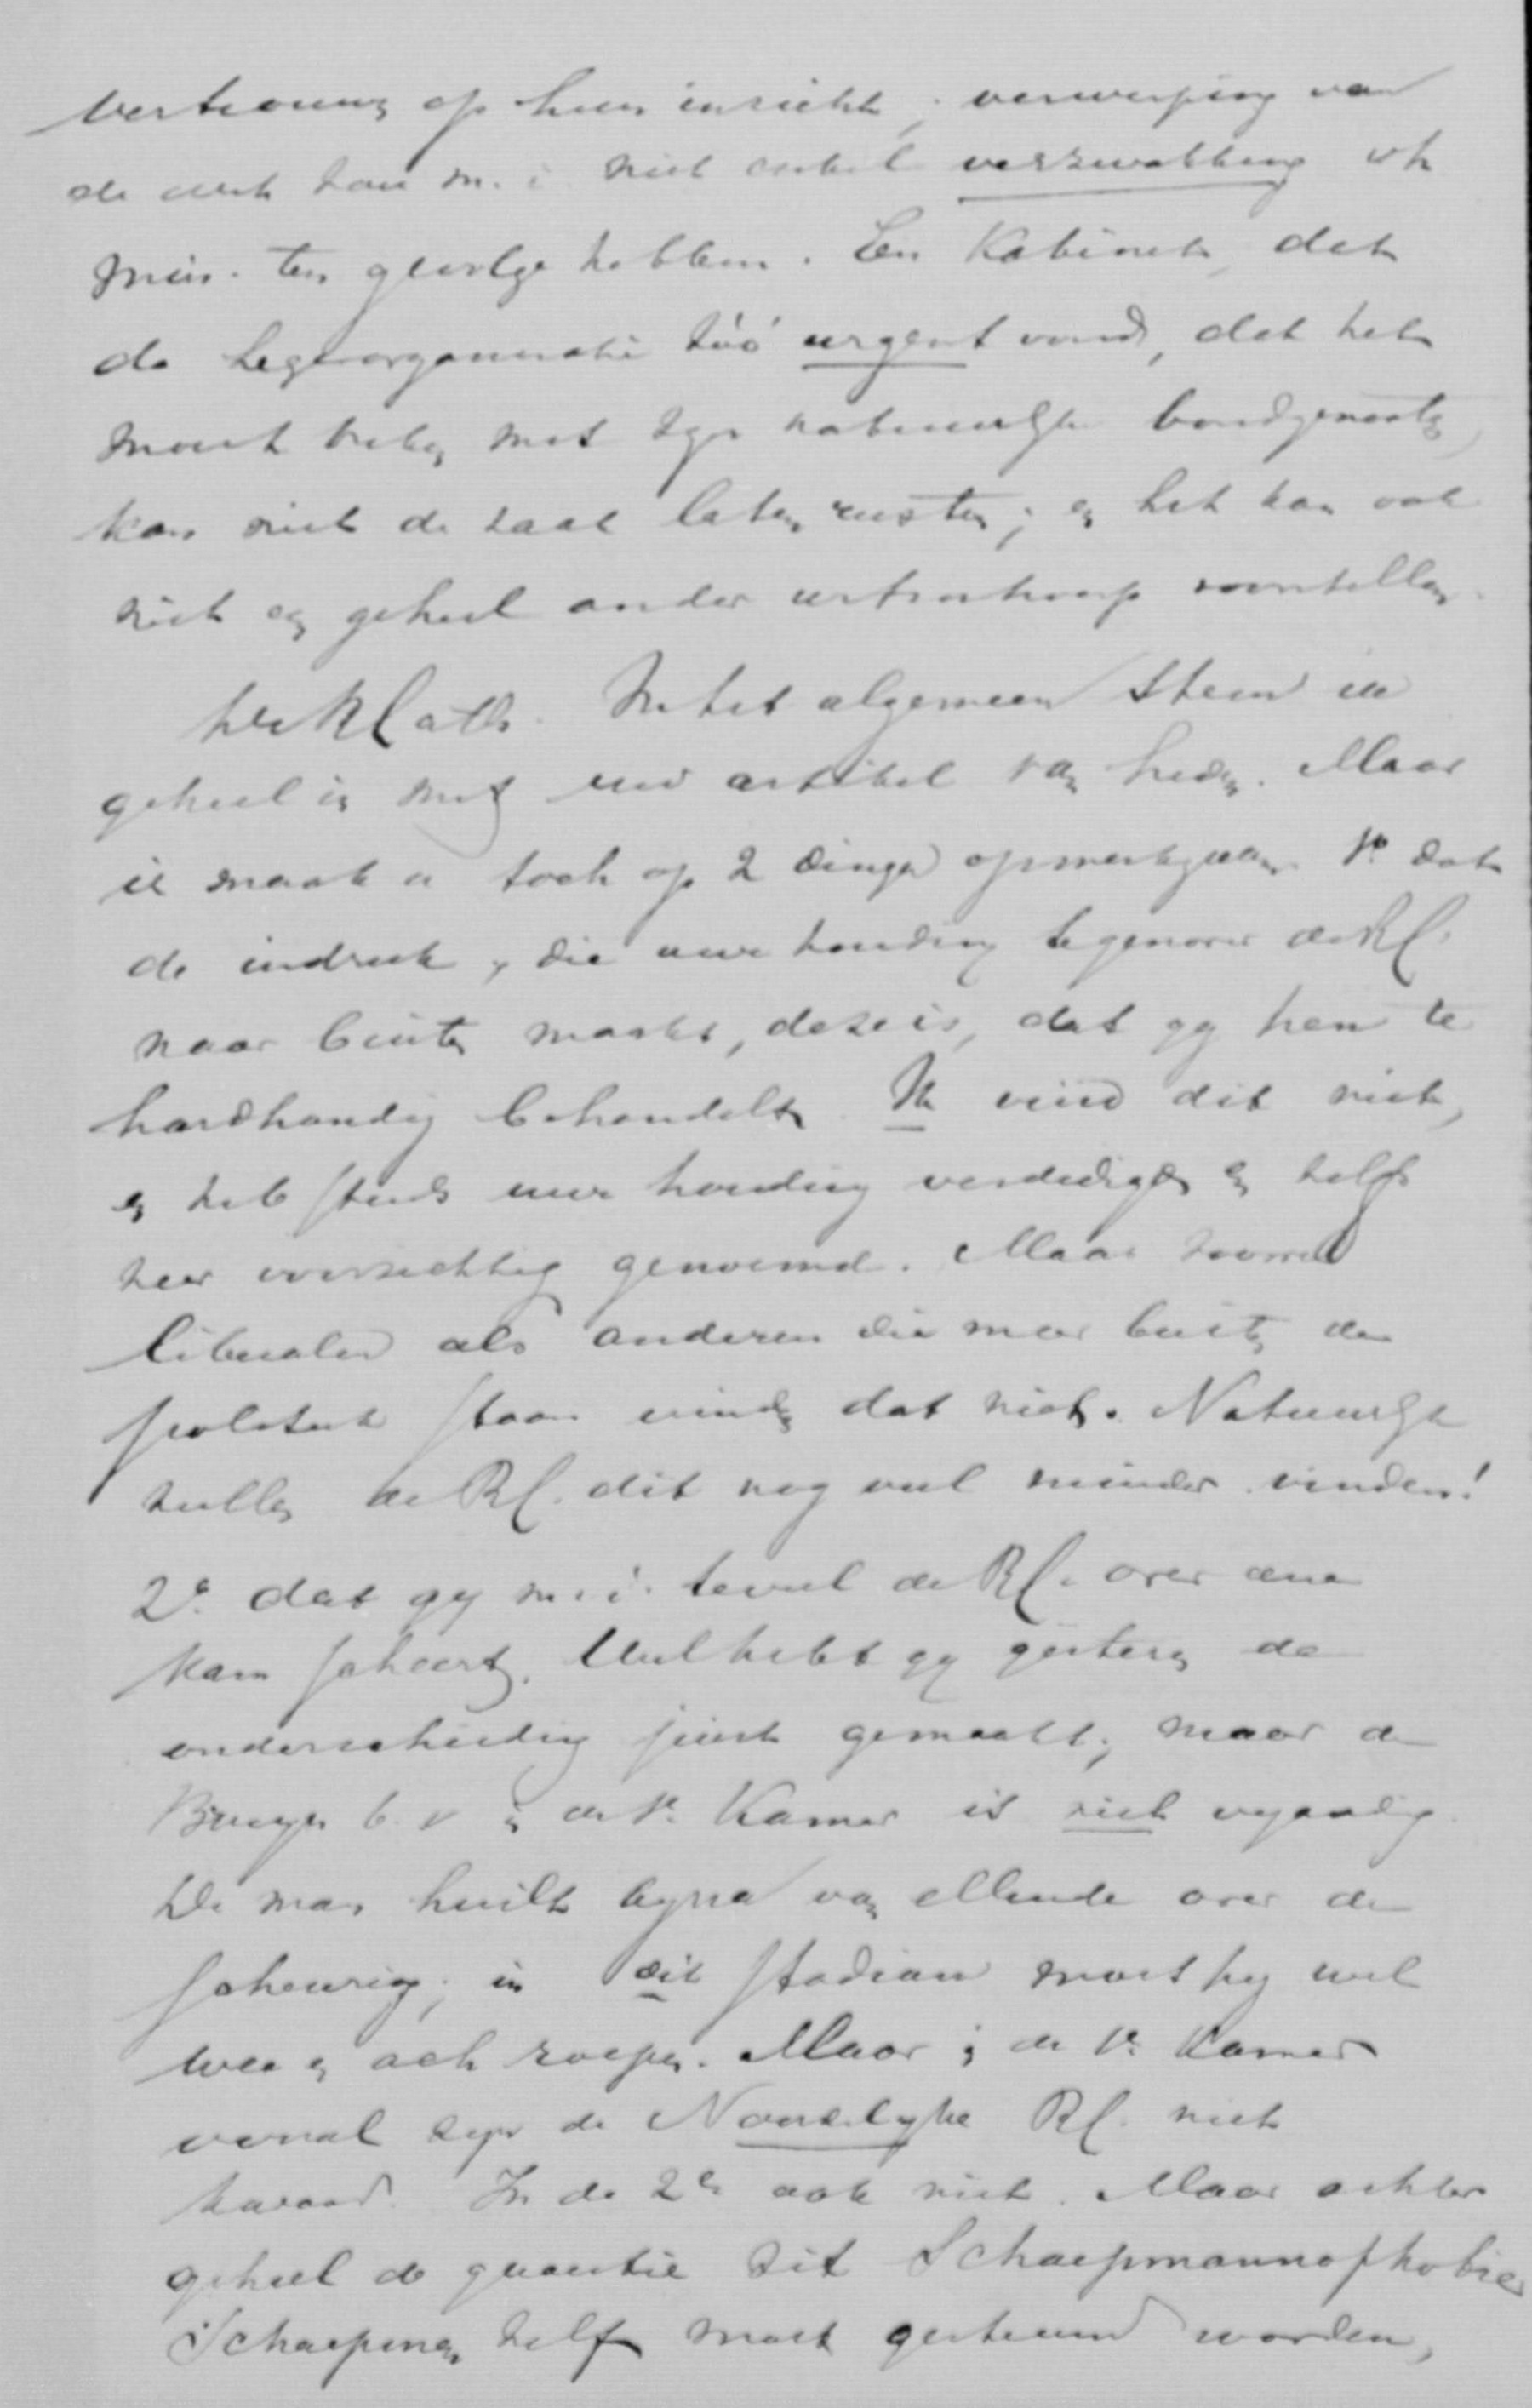 vertrouwen op hun inzicht; verwerping van
de wet zou m.i. niet enkel verzwakking v/h
min. ten gevolge hebben. Een Kabinet, dat
de legerorganisatie zóó urgent vond, dat het
moest breken met zijn natuurlijke bondgenooten,
kan niet de zaak laten rusten; en het kan ook
niet een geheel ander wetsontwerp voorstellen.
De RCath. In het algemeen stem ik
geheel in met uw artikel van heden. Maar
ik maak u toch op 2 dingen opmerkzaam. 1o dat
de indruk, die uwe houding tegenover de RC.
naar buiten maakt, deze is, dat gij hen te
hardhandig behandelt. Ik vind dit niet,
en heb steeds uwe houding verdedigd en zelfs
zeer voorzichtig genoemd. Maar zoowel
liberalen als anderen die meer buiten de
politiek staan vinden dat niet. Natuurlijk
zullen de RC. dit nog veel minder vinden!
2o dat gij m.i. teveel de RC. over éene
kam scheert. Wel hebt gij gisteren de
onderscheiding juist gemaakt; maar de
b.v. in de 1e Kamer is niet vijandig.
De man huilt bijna van ellende over de
scheuring; in dit stadium moest hij wel
wee en ach roepen. Maar in de 1e Kamer
vooral zijn de Noordelijke RC. niet
kwaad. In de 2e ook niet. Maar achter
geheel de quaestie zit Schaepmannophobie
Schaepman zelf moet gesteund worden,